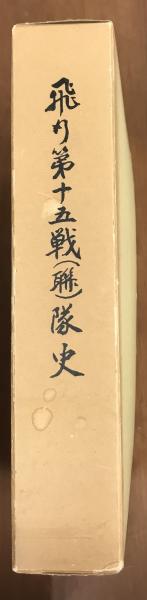 飛行第十五戦(聯)隊史